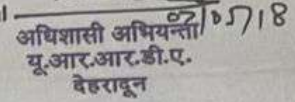 07/05/18
अधिशासी अभियन्ता
यू.आर.आर.डी.ए.
देहरादून